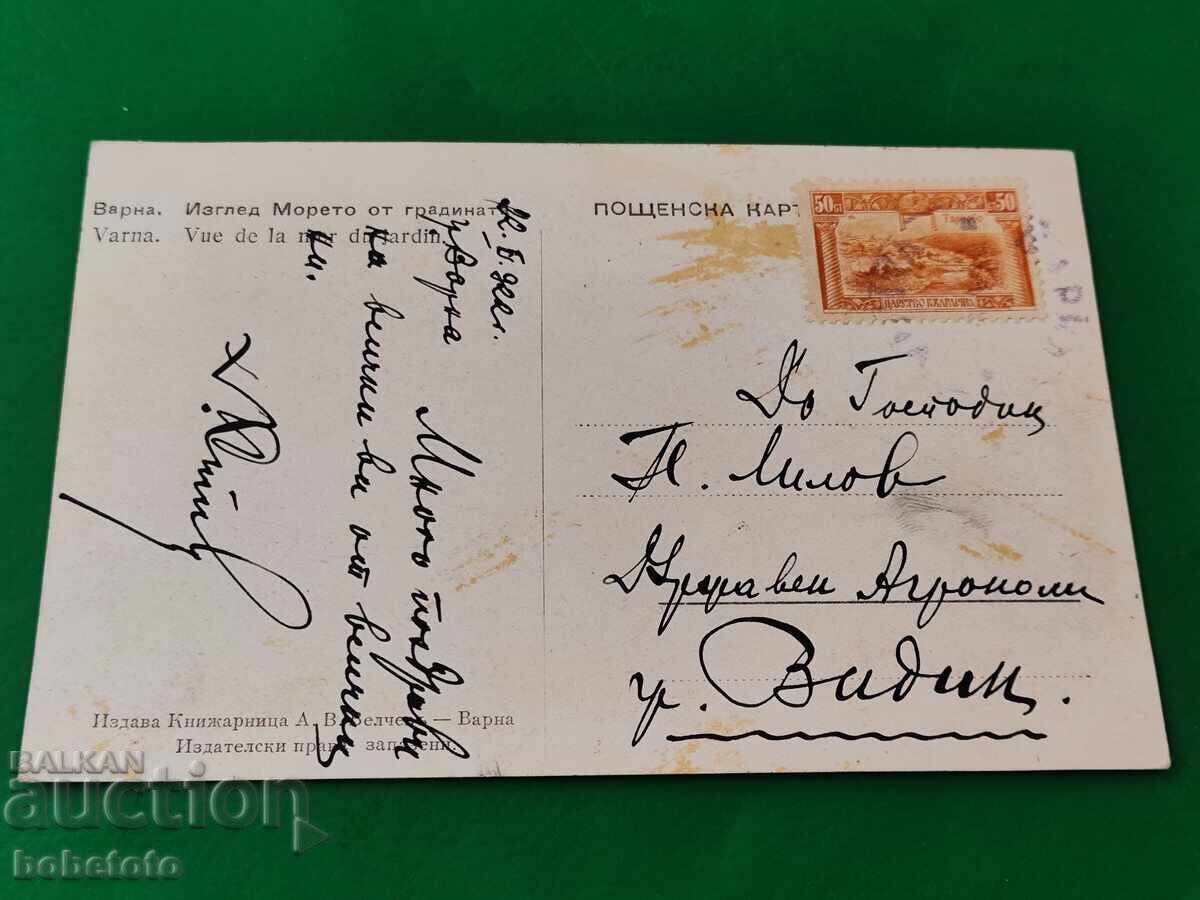 Варна. Изглед Морето от градинат
Varna. Vue de la mer du Jardin.
ПОЩЕНСКА КАРТ
50 50
ЦАРСТВО БЪЛГАРИЯ
гр. Варна
Много поздрави
на всички ви от всички
ни.
До Господин
П. Милов
Държавен Агроном
гр. Видин.
Издава Книжарница А. В. Велчев — Варна
Издателски права запазени.
BALKAN
auction
bobetoto